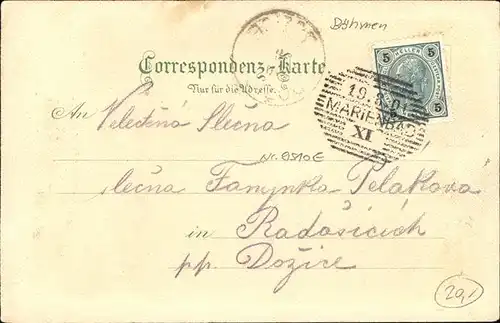 Böhmen
Correspondenz-Karte
Nur für die Adresse.
5 HELLER 5
19.8.01
MARIENBAD
XI
An Velectěná Slečna
Nr. 8510E
slečna Fanynka Pelákova
in Radošicích
pp. Dožice
20,-